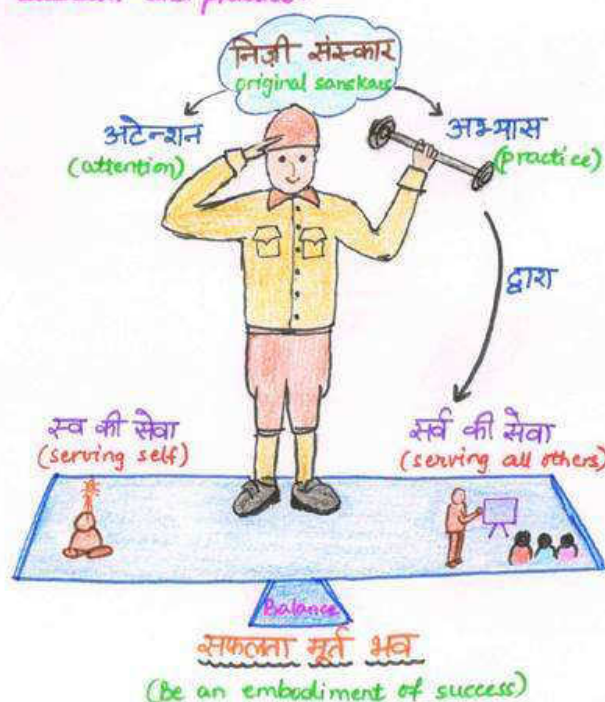 निज़ी संस्कार
original sanskars
अटेन्शन
(attention)
अभ्यास
(practice)
द्वारा
स्व की सेवा
(serving self)
सर्व की सेवा
(serving all others)
Balance
सफलता मूर्त भव
(Be an embodiment of success)